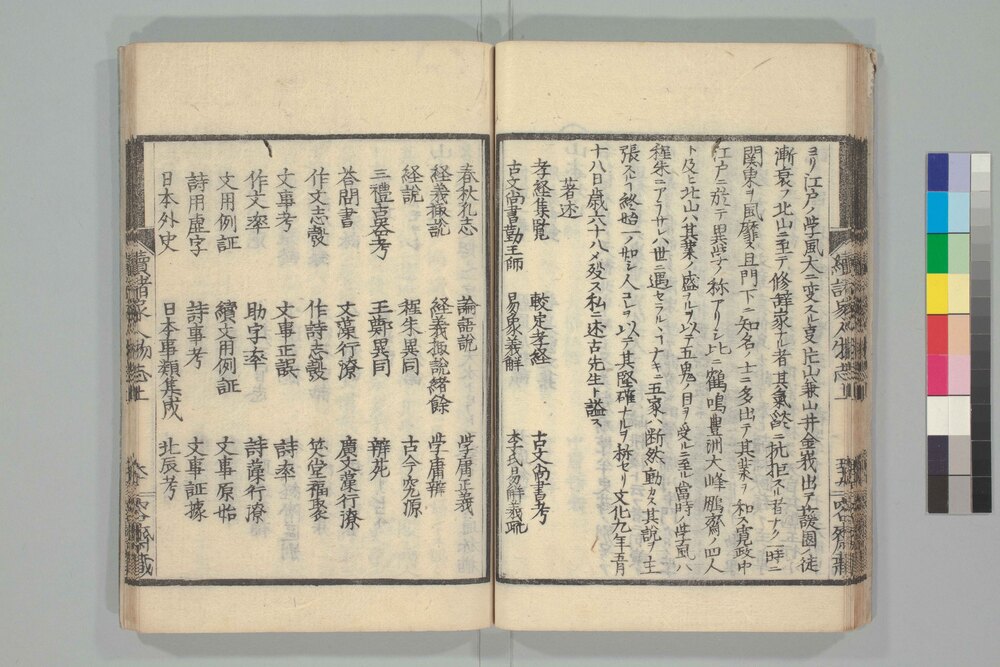 ヨリ江戸ノ学風大ニ変スル吏片山兼山井金峩出テ蘐園ノ徒
漸衰フ北山ニ至テ修辞家ル者其氣燄ニ抗拒スル者ナク一時ニ
関東ヲ風靡ス且門下ニ知名ノ士ニ多出テ其業ヲ和ス寛政中
江戸ニ於テ異学ノ称アリシ比ニ鶴鳴豊洲大峰鵬齋ノ四人
ト及ヒ北山ハ其業ノ盛ナルヲ以テ五鬼ノ目ヲ受ルニ至ル當時ノ学風ハ
程朱ニアラサレハ世ニ遇セラルヽナキニ五家ハ断然動カス其說ヲ主
張スルヿ終始一ノ如シ人コレヲ以テ其堅確ナルヲ称セリ文化九年五月
十八日歳六十八メ歿ス私ニ述古先生ト謚ス
著述
孝経集覧　較定孝経　古文尚書考
古文尚書勤王師　易象義解　李氏易解義疏
春秋孔志　論語說　学庸正義
経義掫說　経義掫說緒餘　学庸辨
経說　程朱異同　古今究源
三禮古器考　王鄭異同　辨苑
荅問書　文藻行潦　廣文藻行潦
作文志彀　作詩志彀　笶堂福聚
文事考　文事正誤　詩率
作文率　助字率　詩藻行潦
文用例証　續文用例証　文事原始
詩用虚字　詩事考　文事証據
日本外史　日本事類集成　北辰考
續諸家人物志上
續諸家人物志上